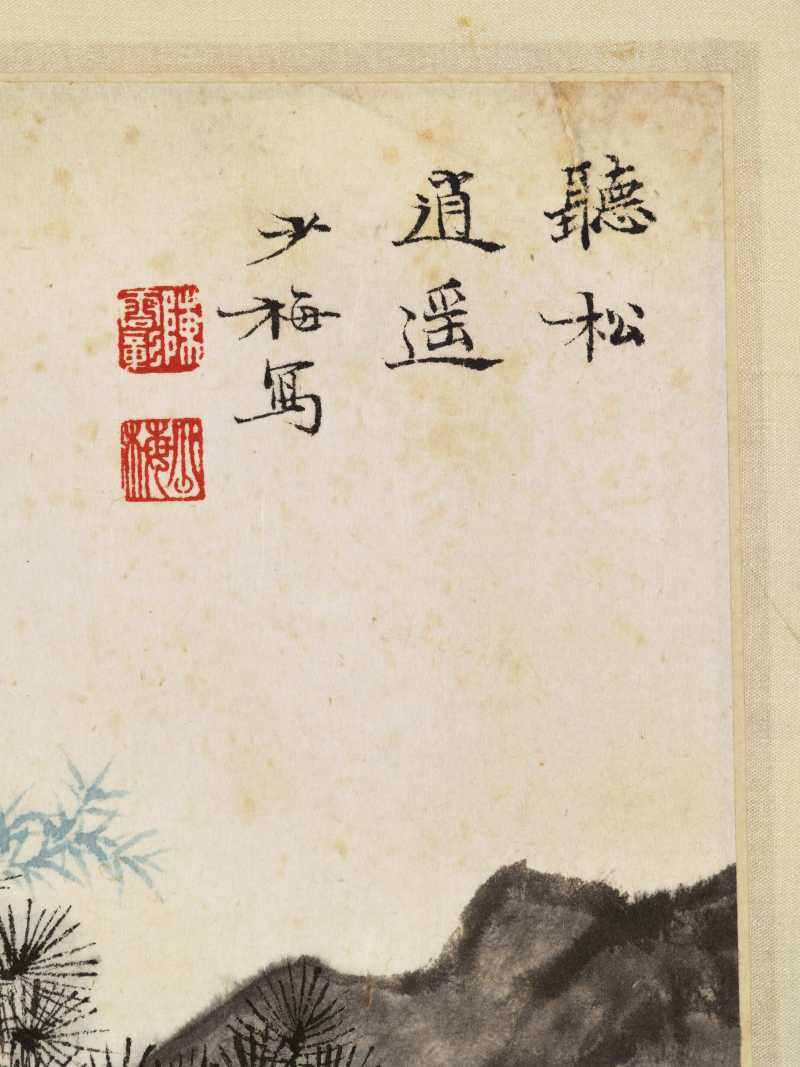 聽松
逍遥
少梅寫
陳雲彰
少梅